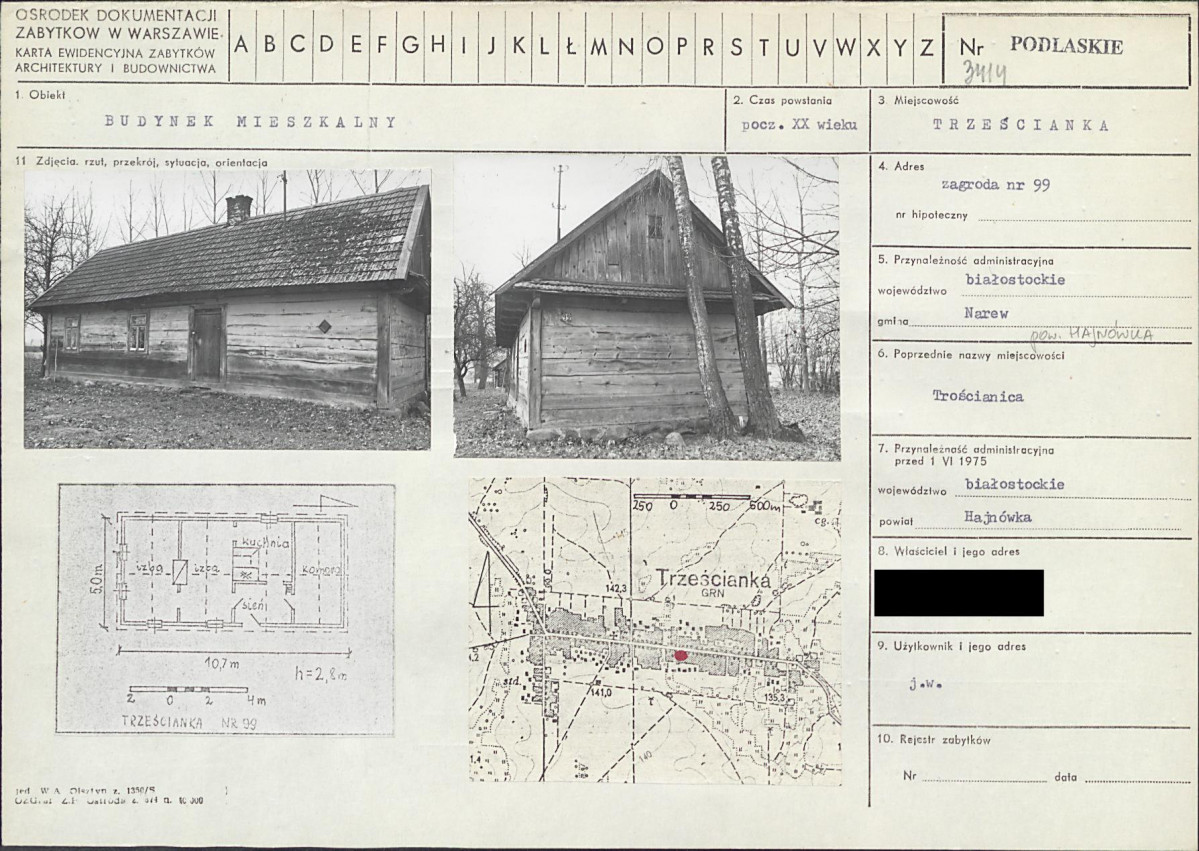 OŚRODEK DOKUMENTACJI
ZABYTKÓW W WARSZAWIE
KARTA EWIDENCYJNA ZABYTKÓW
ARCHITEKTURY I BUDOWNICTWA
A B C D E F G H I J K L Ł M N O P R S T U V W X Y Z
Nr PODLASKIE
3414
1. Obiekt
BUDYNEK MIESZKALNY
2. Czas powstania
pocz. XX wieku
3. Miejscowość
TRZEŚCIANKA
11 Zdjęcia. rzut, przekrój, sytuacja, orientacja
4. Adres
zagroda nr 99
nr hipoteczny
5. Przynależność administracyjna
województwo białostockie
gmina Narew
pow. HAJNÓWKA
6. Poprzednie nazwy miejscowości
Trościanica
7. Przynależność administracyjna
przed 1 VI 1975
województwo białostockie
powiat Hajnówka
8. Właściciel i jego adres
9. Użytkownik i jego adres
j.w.
10. Rejestr zabytków
Nr data
kuchnia
izba izba komora
sień
5,0 m
10,7 m
h=2,8m
2 0 2 4 m
TRZEŚCIANKA NR 99
250 0 250 500m
cg.
Trześcianka
GRN
142,3
141,0
135,3
140